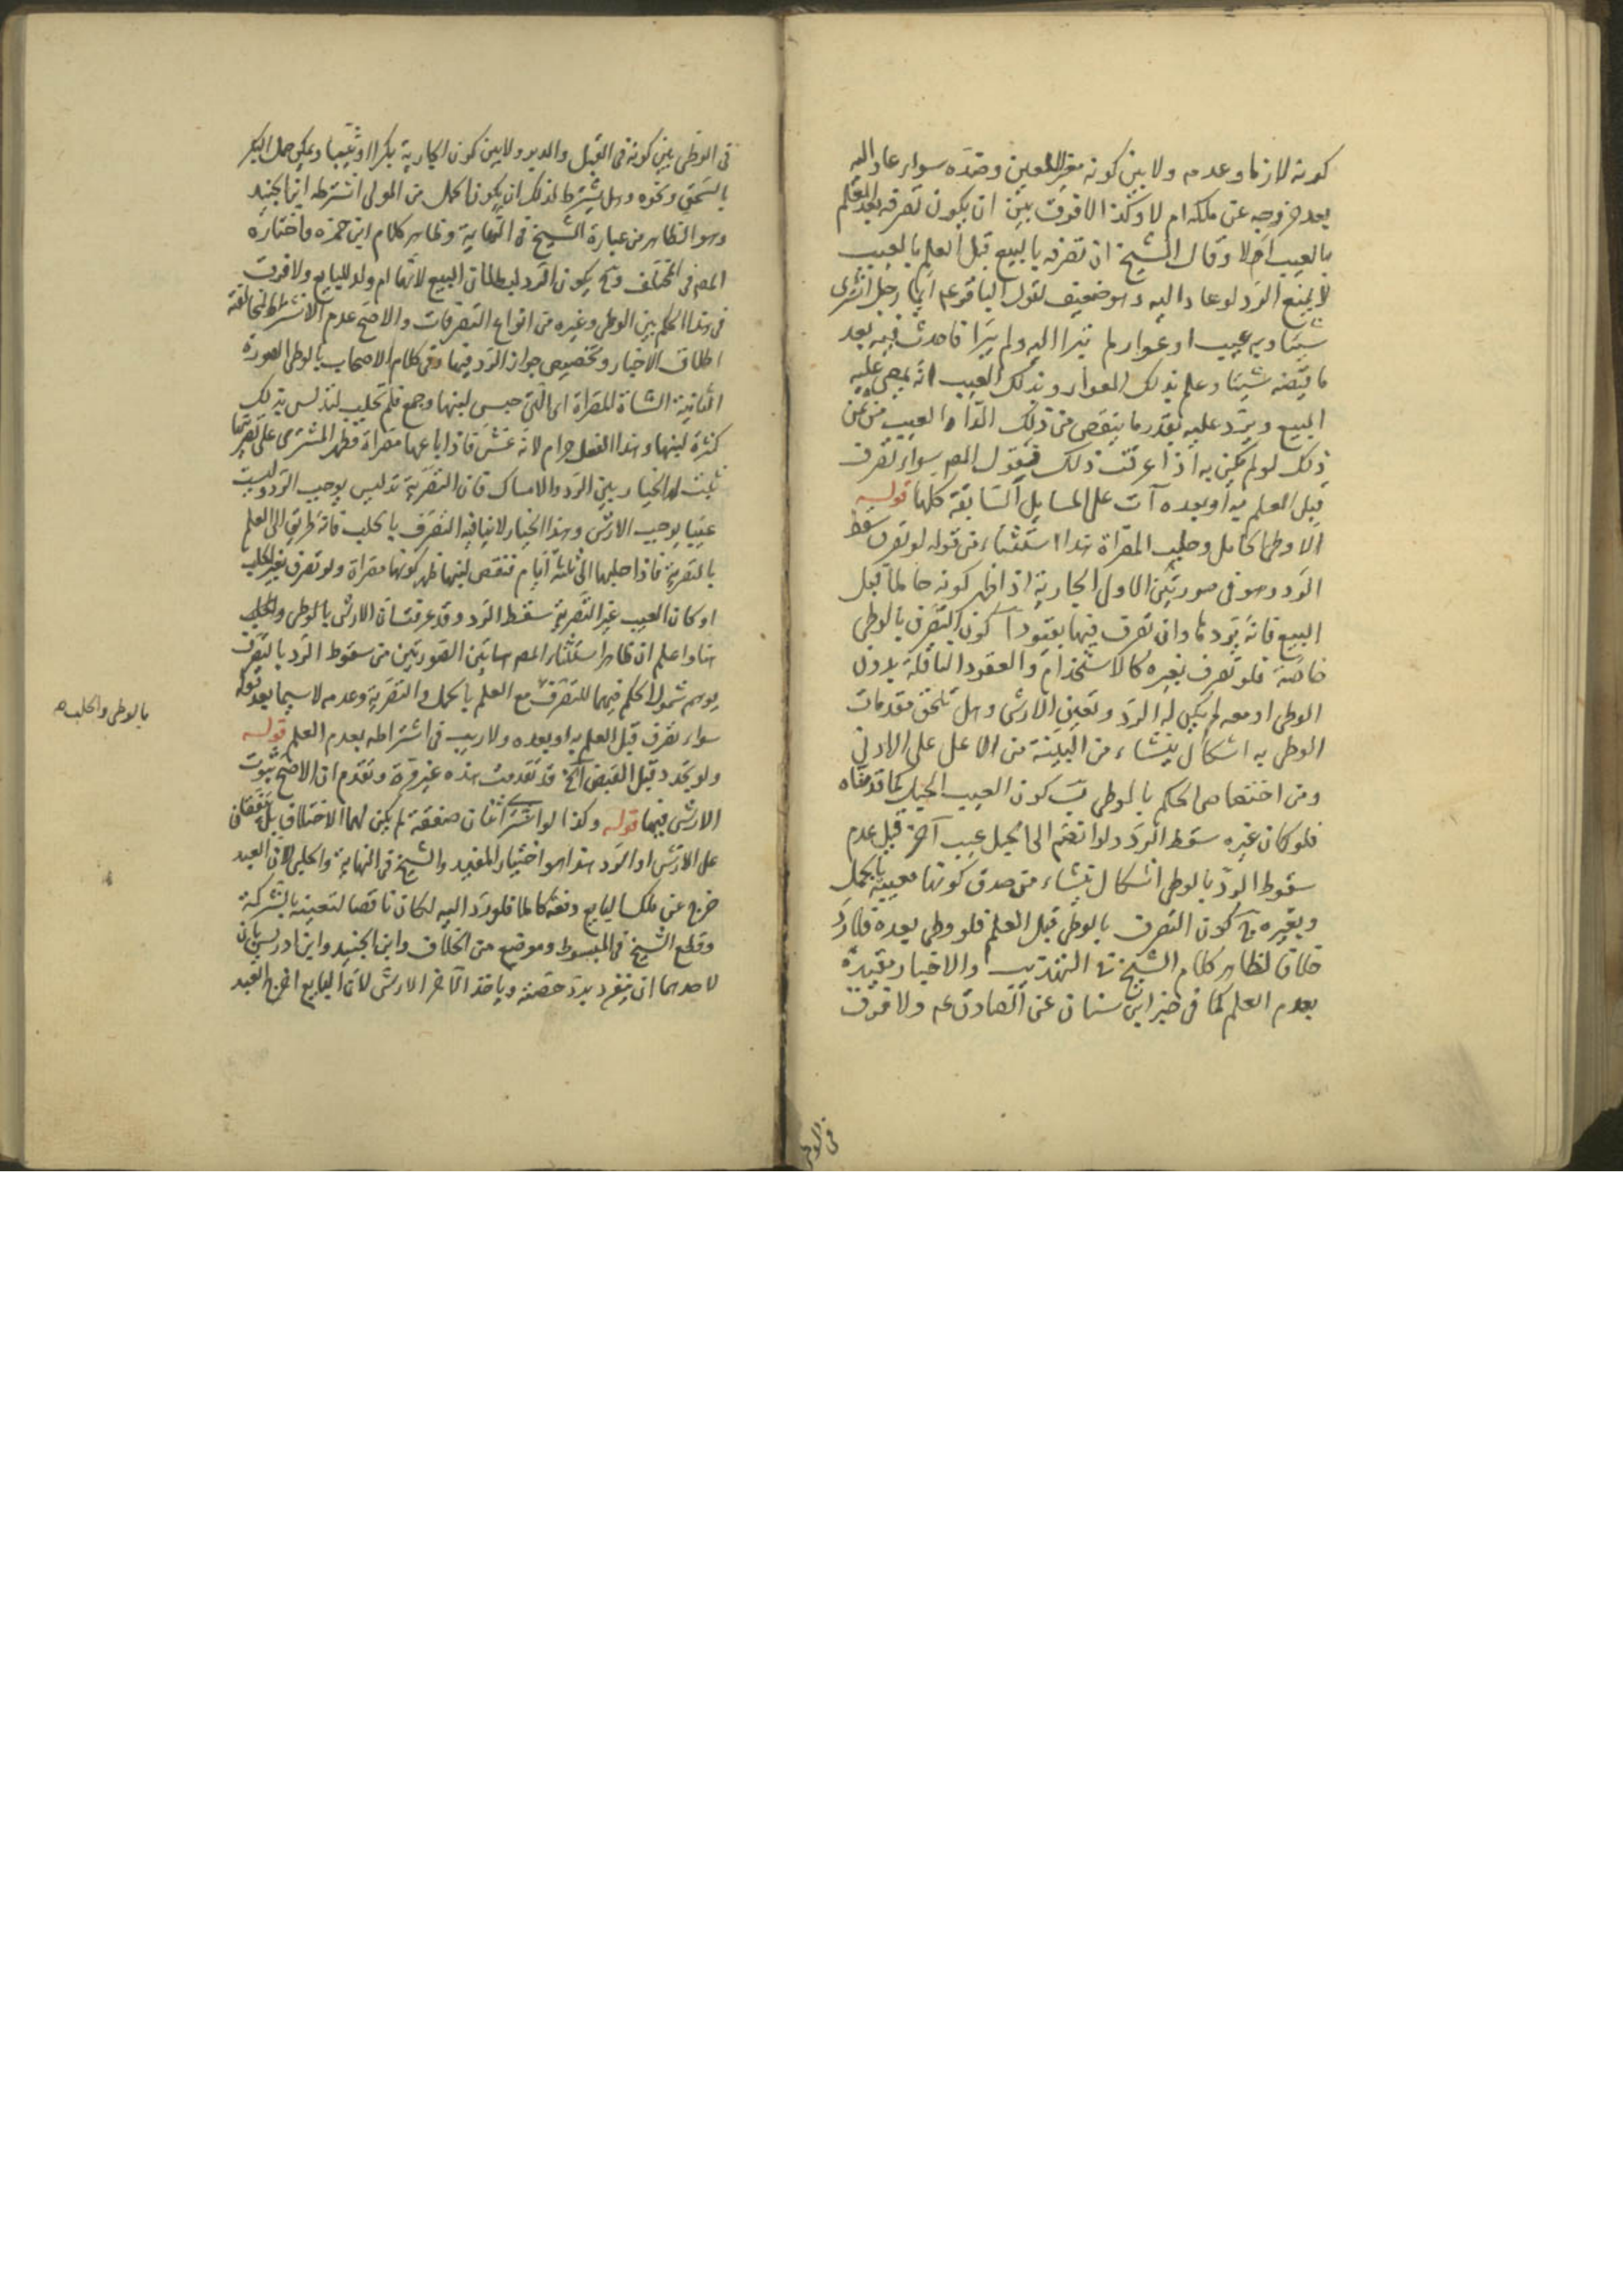 كونه لازما وعدمه ولا بين كونه مغيرا للعين وضده سواء عاد اليه
بعد خروجه عن ملكه ام لا وكذا لا فرق بين ان يكون تصرفه بعد العلم
بالعيب ام لا وقال الشيخ ان تصرفه بالبيع قبل العلم بالعيب
لا يمنع الرد لو عاد اليه وهو ضعيف لقول الباقر عم ايما رجل اشترى
شيئا وبه عيب او عوار لم يتبرا اليه ولم يبرا فاحدث فيه بعد
ما قبضه شيئا وعلم بذلك العوار وبذلك العيب انه يمضى عليه
البيع ويرد عليه بقدر ما ينقص من ذلك الداء والعيب من ثمن
ذلك لو لم يكن به اذا عرفت ذلك فيقول المص سواء تصرف
قبل العلم به او بعده آت على المسايل السابقة كلها قوله
الا وطى الحامل وحلب المصراة هذا استثناء من قوله لو تصرف سقط
الرد وهو فى صورتين الاولى الجارية اذا ظهر كونه حاملا قبل
البيع فانه يردها وان تصرف فيها بقيود آ كون التصرف بالوطى
خاصة فلو تصرف بغيره كالاستخدام والعقود الناقلة بدون
الوطى او معه لم يكن له الرد وتعين الارش وهل تلحق مقدمات
الوطى به اشكال ينشاء من البينة من الاعلى على الادنى
ومن اختصاص الحكم بالوطى ب كون العيب الحبل كما قدمناه
فلو كان غيره سقط الرد ولو انضم الى الحبل عيب آخر قبل عدم
سقوط الرد بالوطى اشكال ينشاء من صدق كونها معيبة بالحمل
وبغيره ج كون التصرف بالوطى قبل العلم فلو وطى بعده فلا رد
خلافا لظاهر كلام الشيخ فى التهذيب والاخبار مقيدة
بعدم العلم كما فى خبر ابن سنان عن الصادق عم ولا فرق
فى الوطى
فى الوطى بين كونه فى القبل والدبر ولا بين كون الجارية بكرا او ثيبا ويمكن حمل البكر
بالسحق ونحوه وهل يشترط لذلك ان يكون الحمل من المولى اشترطه ابن الجنيد
وهو الظاهر من عبارة الشيخ فى النهاية وظاهر كلام ابن حمزه واختاره
المص فى المختلف وح يكون الرد لبطلان البيع لانها ام ولد للبايع ولا فرق
فى هذا الحكم بين الوطى وغيره من انواع التصرفات والاصح عدم الاشتراط لمخالفة
اطلاق الاخبار وتخصيص جواز الرد فيها وفى كلام الاصحاب بالوطى الصورة
الثانية الشاة المصراة اى التى حبس لبنها وجمع فلم تحلب ليدلس بذلك
كثرة لبنها وهذا الفعل حرام لانه غش فاذا باعها مصراة فظهر المشترى على تصريتها
ثبت له الخيار بين الرد والامساك فان التصرية تدليس يوجب الرد وليست
عيبا يوجب الارش وهذا الخيار لا ينافيه التصرف بالحلب فانه طريق الى العلم
بالتصرية فاذا حلبها الى ثلثة ايام فنقص لبنها ظهر كونها مصراة ولو تصرف بغير الحلب
او كان العيب غير التصرية سقط الرد وقد عرفت ان الارش بالوطى والحلب
هنا واعلم ان ظاهر استثناء المص هاتين الصورتين من سقوط الرد بالتصرف
يوهم شمول الحكم فيهما للتصرف مع العلم بالحمل والتصرية وعدمه لا سيما بعد قوله
سواء تصرف قبل العلم به او بعده ولا ريب فى اشتراطه بعدم العلم قوله
ولو تجدد قبل القبض آلخ قد تقدمت هذه غير مرة وتقدم ان الاصح ثبوت
الارش فيها قوله وكذا لو اشترى اثنان صفقة لم يكن لهما الاختلاف بل يتفقان
على الارش او الرد هذا هو اختيار المفيد والشيخ فى النهاية والحلبى لان العبد
خرج عن ملك البايع دفعة كاملا فلو رد اليه لكان ناقصا لتعيبه بالشركة
وقطع الشيخ فى المبسوط وموضع من الخلاف وابن الجنيد وابن ادريس بان
لاحدهما ان ينفرد برد حصته وياخذ الآخر الارش لان البايع اخرج العبد
بالوطى والحلب صح